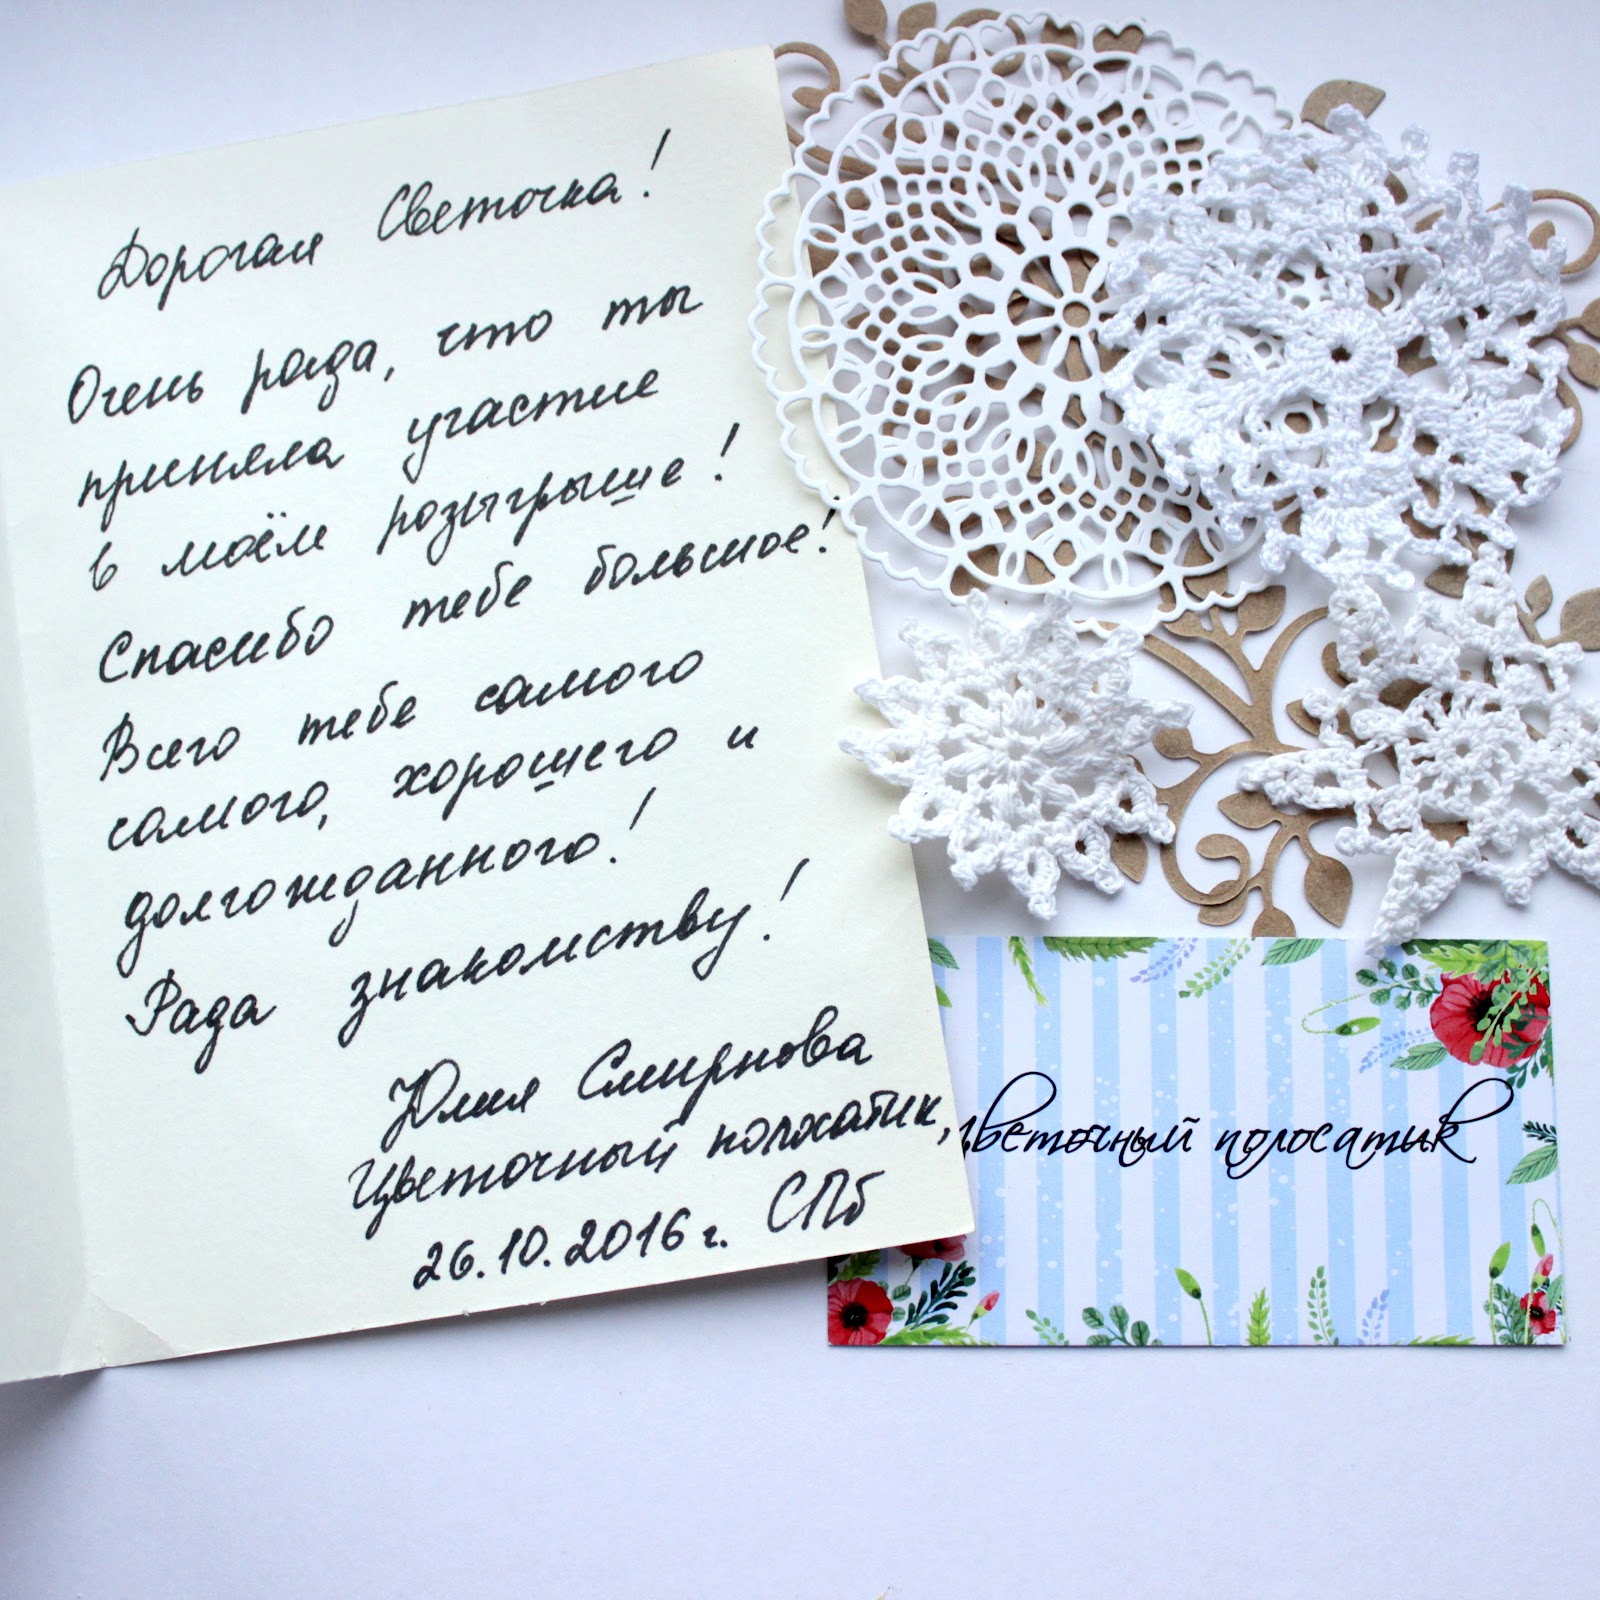 Дорогая Светочка!
Очень рада, что ты
приняла участие
в моём розыгрыше!
Спасибо тебе большое!
Всего тебе самого
самого, хорошего и
долгожданного!
Рада знакомству!
Юлия Смирнова
Цветочный полосатик,
26.10.2016 г. СПб
цветочный полосатик